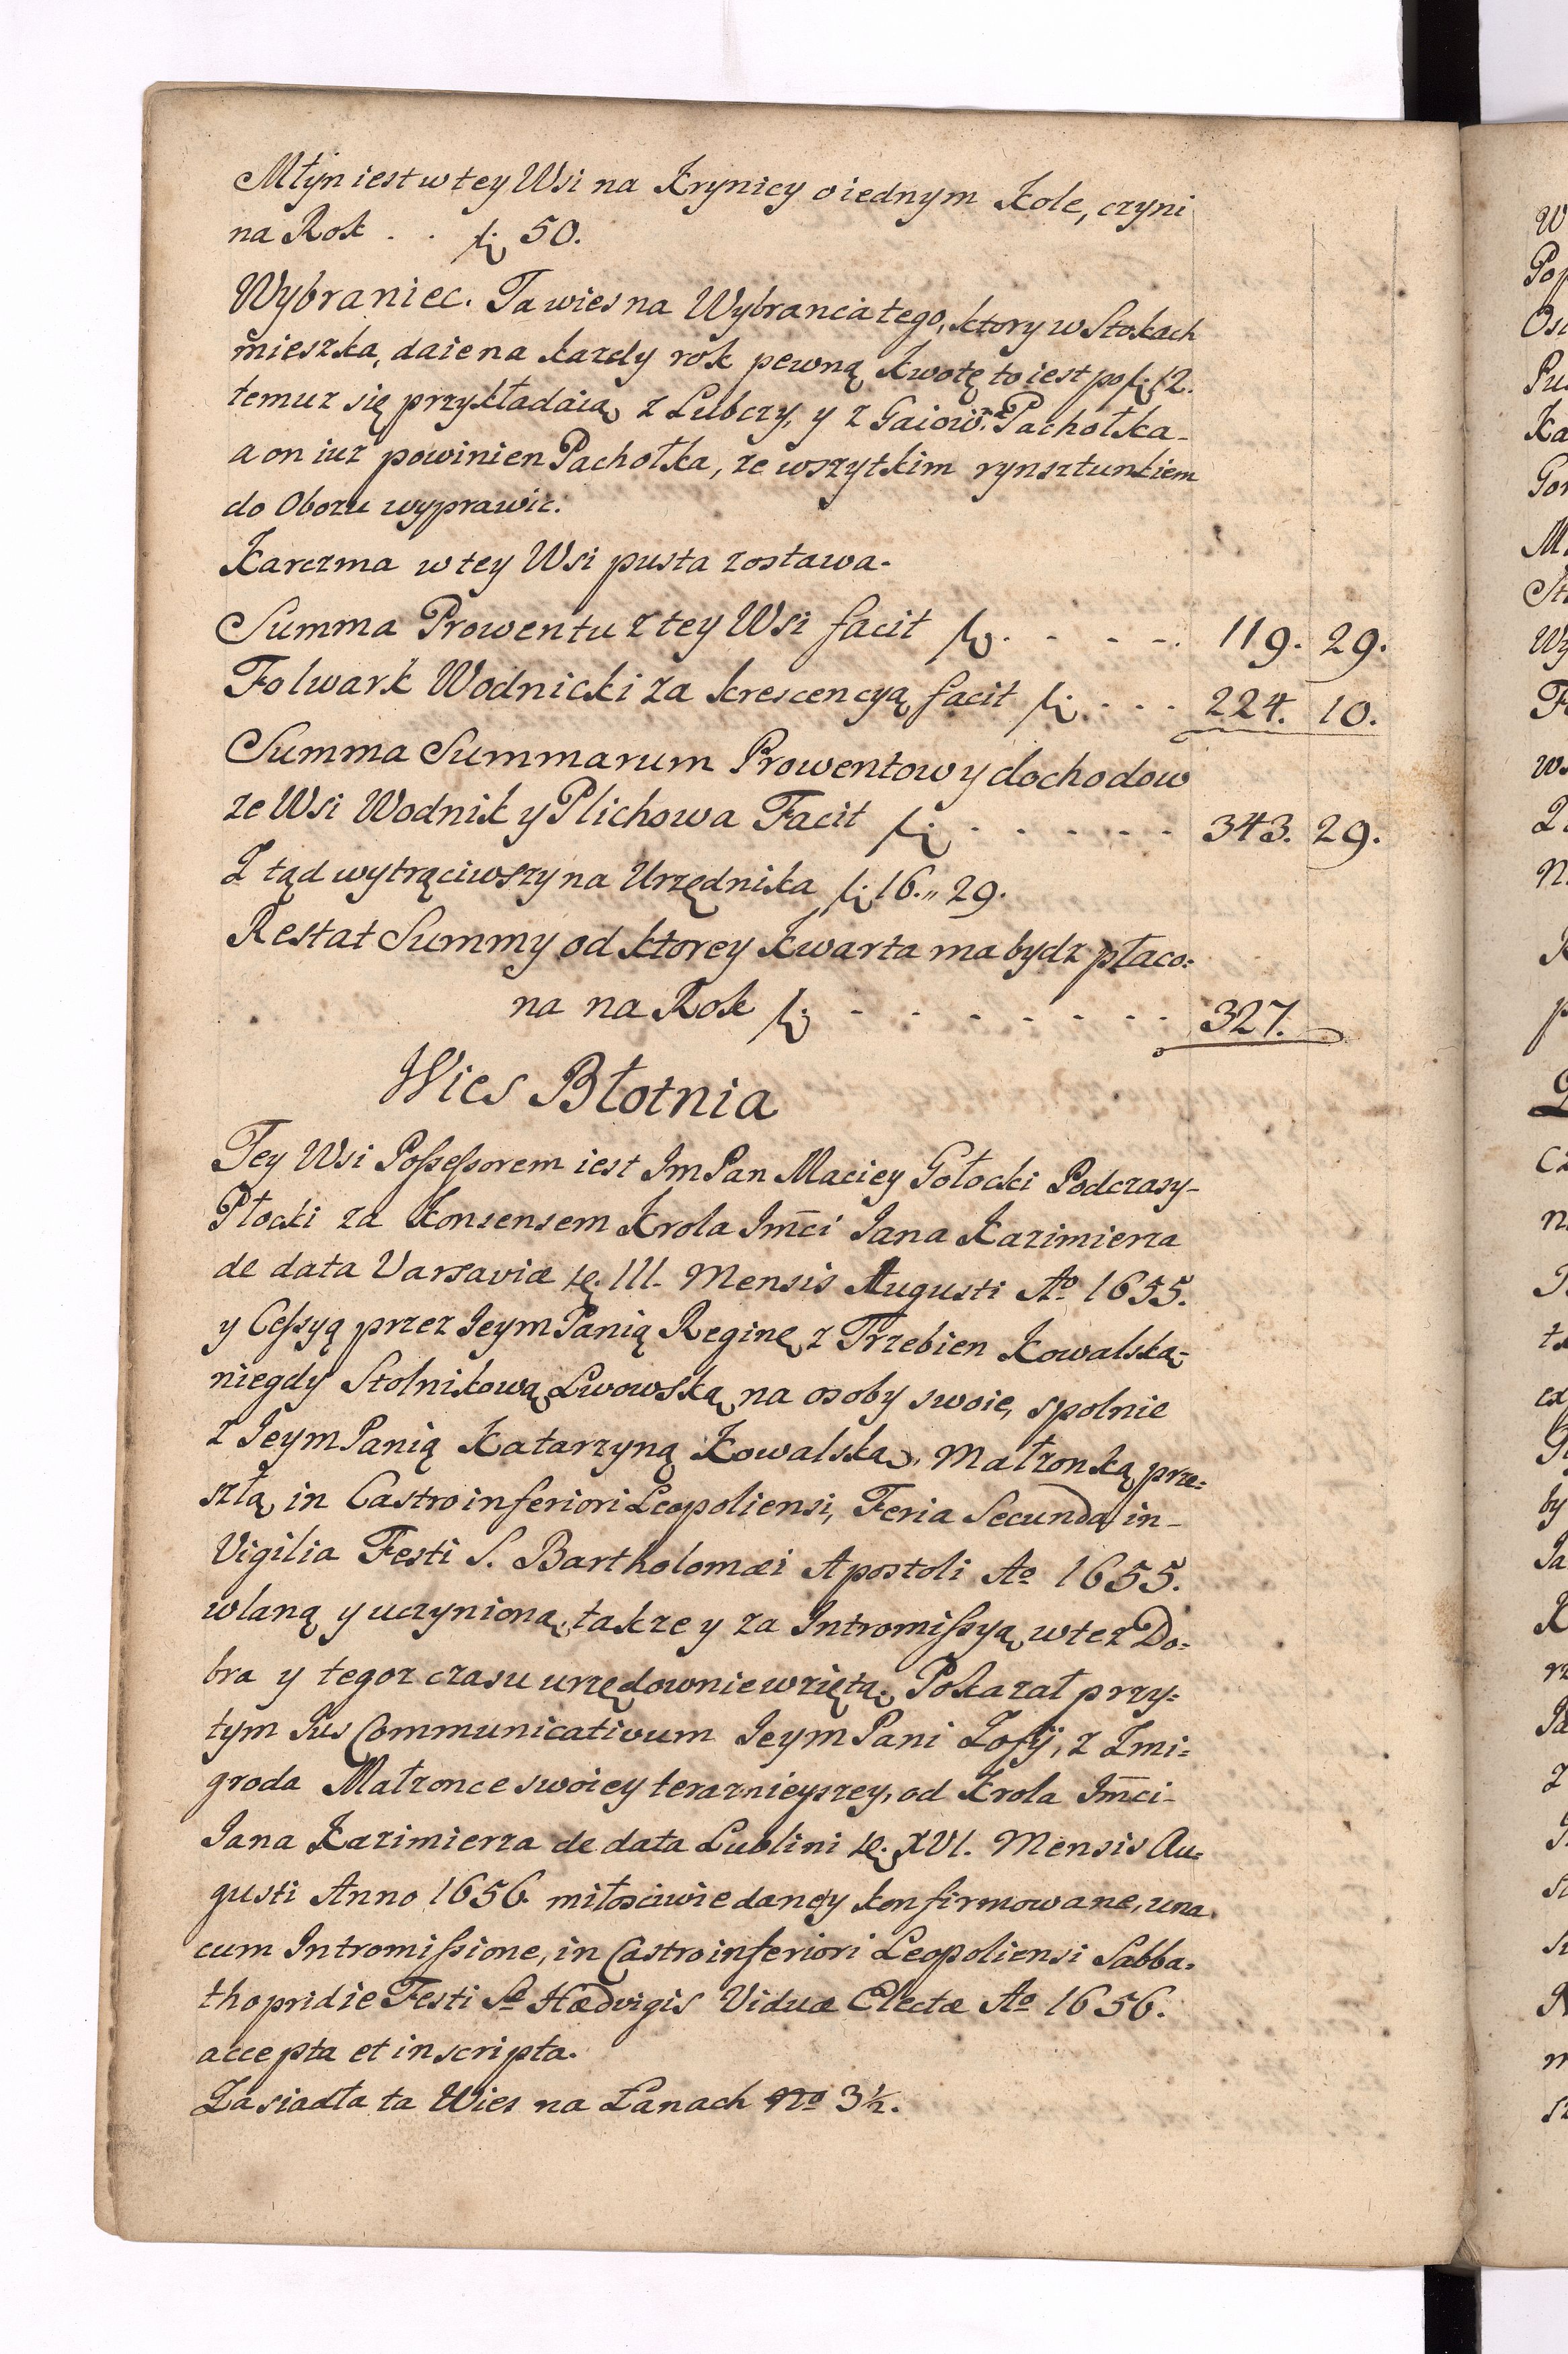 Młyn iest w tey Wsi na Krynicy o iednym Kole, czyni
na Rok . . fl: 50.
Wybraniec. Ta wies na Wybranca tego, ktory w Stokach
mieszka, daie na kazdy rok pewną kwotę to iest po fl: 12.
temuz się przykładaią z Lubczy, y z Gaiow: Pachołka-
a on iuz powinien Pachołka, ze wszytkim rynsztunkiem
do Obozu wyprawic.
Karczma w tey Wsi pusta zostawa.
Summa Prowentu z tey Wsi facit fl: - - - - 119. 29.
Folwark Wodnicki za krescencyą facit fl: - - - 224. 10.
Summa Summarum Prowentow y dochodow
ze Wsi Wodnik y Plichowa Facit fl: - - - - - 343. 29.
Z tąd wytrąciwszy na Urzędnika fl: 16.„ 29.
Restat Summy od ktorey Kwarta ma bydz płaco:
na na Rok fl: - - - - - - - 327.
Wies Błotnia
Tey Wsi Possessorem iest Im Pan Maciey Gołocki Podczasy-
Płocki za Konsensem Krola Jm̄ci Jana Kazimierza
de data Varsaviæ d. III. Mensis Augusti Ao 1655.
y Cessyą przez Jeym Panią Reginę z Trzebien Kowalską-
niegdy Stolnikową Lwowską na osoby swoie, spolnie
z Jeym Panią Katarzyną Kowalską, Małzonką prze:
szłą in Castro inferiori Leopoliensi, Feria Secunda in-
Vigilia Festi S. Bartholomæi Apostoli Ao 1655.
wlaną y uczynioną, takze y za Intromissyą w tez Do:
bra y tegoz czasu urzędownie wziętą. Pokazał przy:
tym Jus Communicativum Jeym Pani Zofij, z Zmi:
groda Małzonce swoiey teraznieyszey, od Krola Jm̄ci-
Jana Kazimierza de data Lublini d. XVI. Mensis Au:
gusti Anno 1656. miłosciwie dane y konfirmowane, una
cum Intromissione, in Castro inferiori Leopoliensi Sabba:
tho pridie Festi Sæ Hædvigis Viduæ Electæ Ao 1656.
accepta et inscripta.
Zasiadła ta Wies na Łanach No 3½.